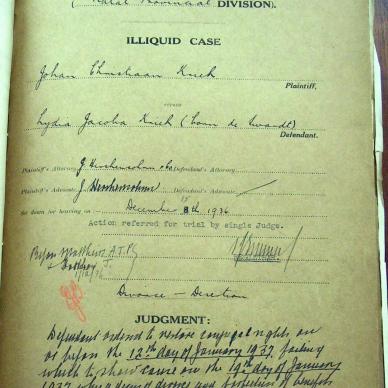 (Natal Provincial DIVISION).
ILLIQUID CASE
Johan Christiaan Kriek
Plaintiff,
versus
Lydia Jacoba Kriek (born de Swardt)
Defendant.
Plaintiff's Attorney Defendant's Attorney
Plaintiff's Advocate Defendant's Advocate
Set down for hearing on December 1936
Action referred for trial by single Judge.
Before Matthews A.J.P.
J.
Divorce – Desertion
JUDGMENT:
Defendant ordered to restore conjugal rights on
or before the 12th day of January 1937, failing
which to show cause on the 19th day of January
1937 why a decree of divorce and forfeiture of benefits